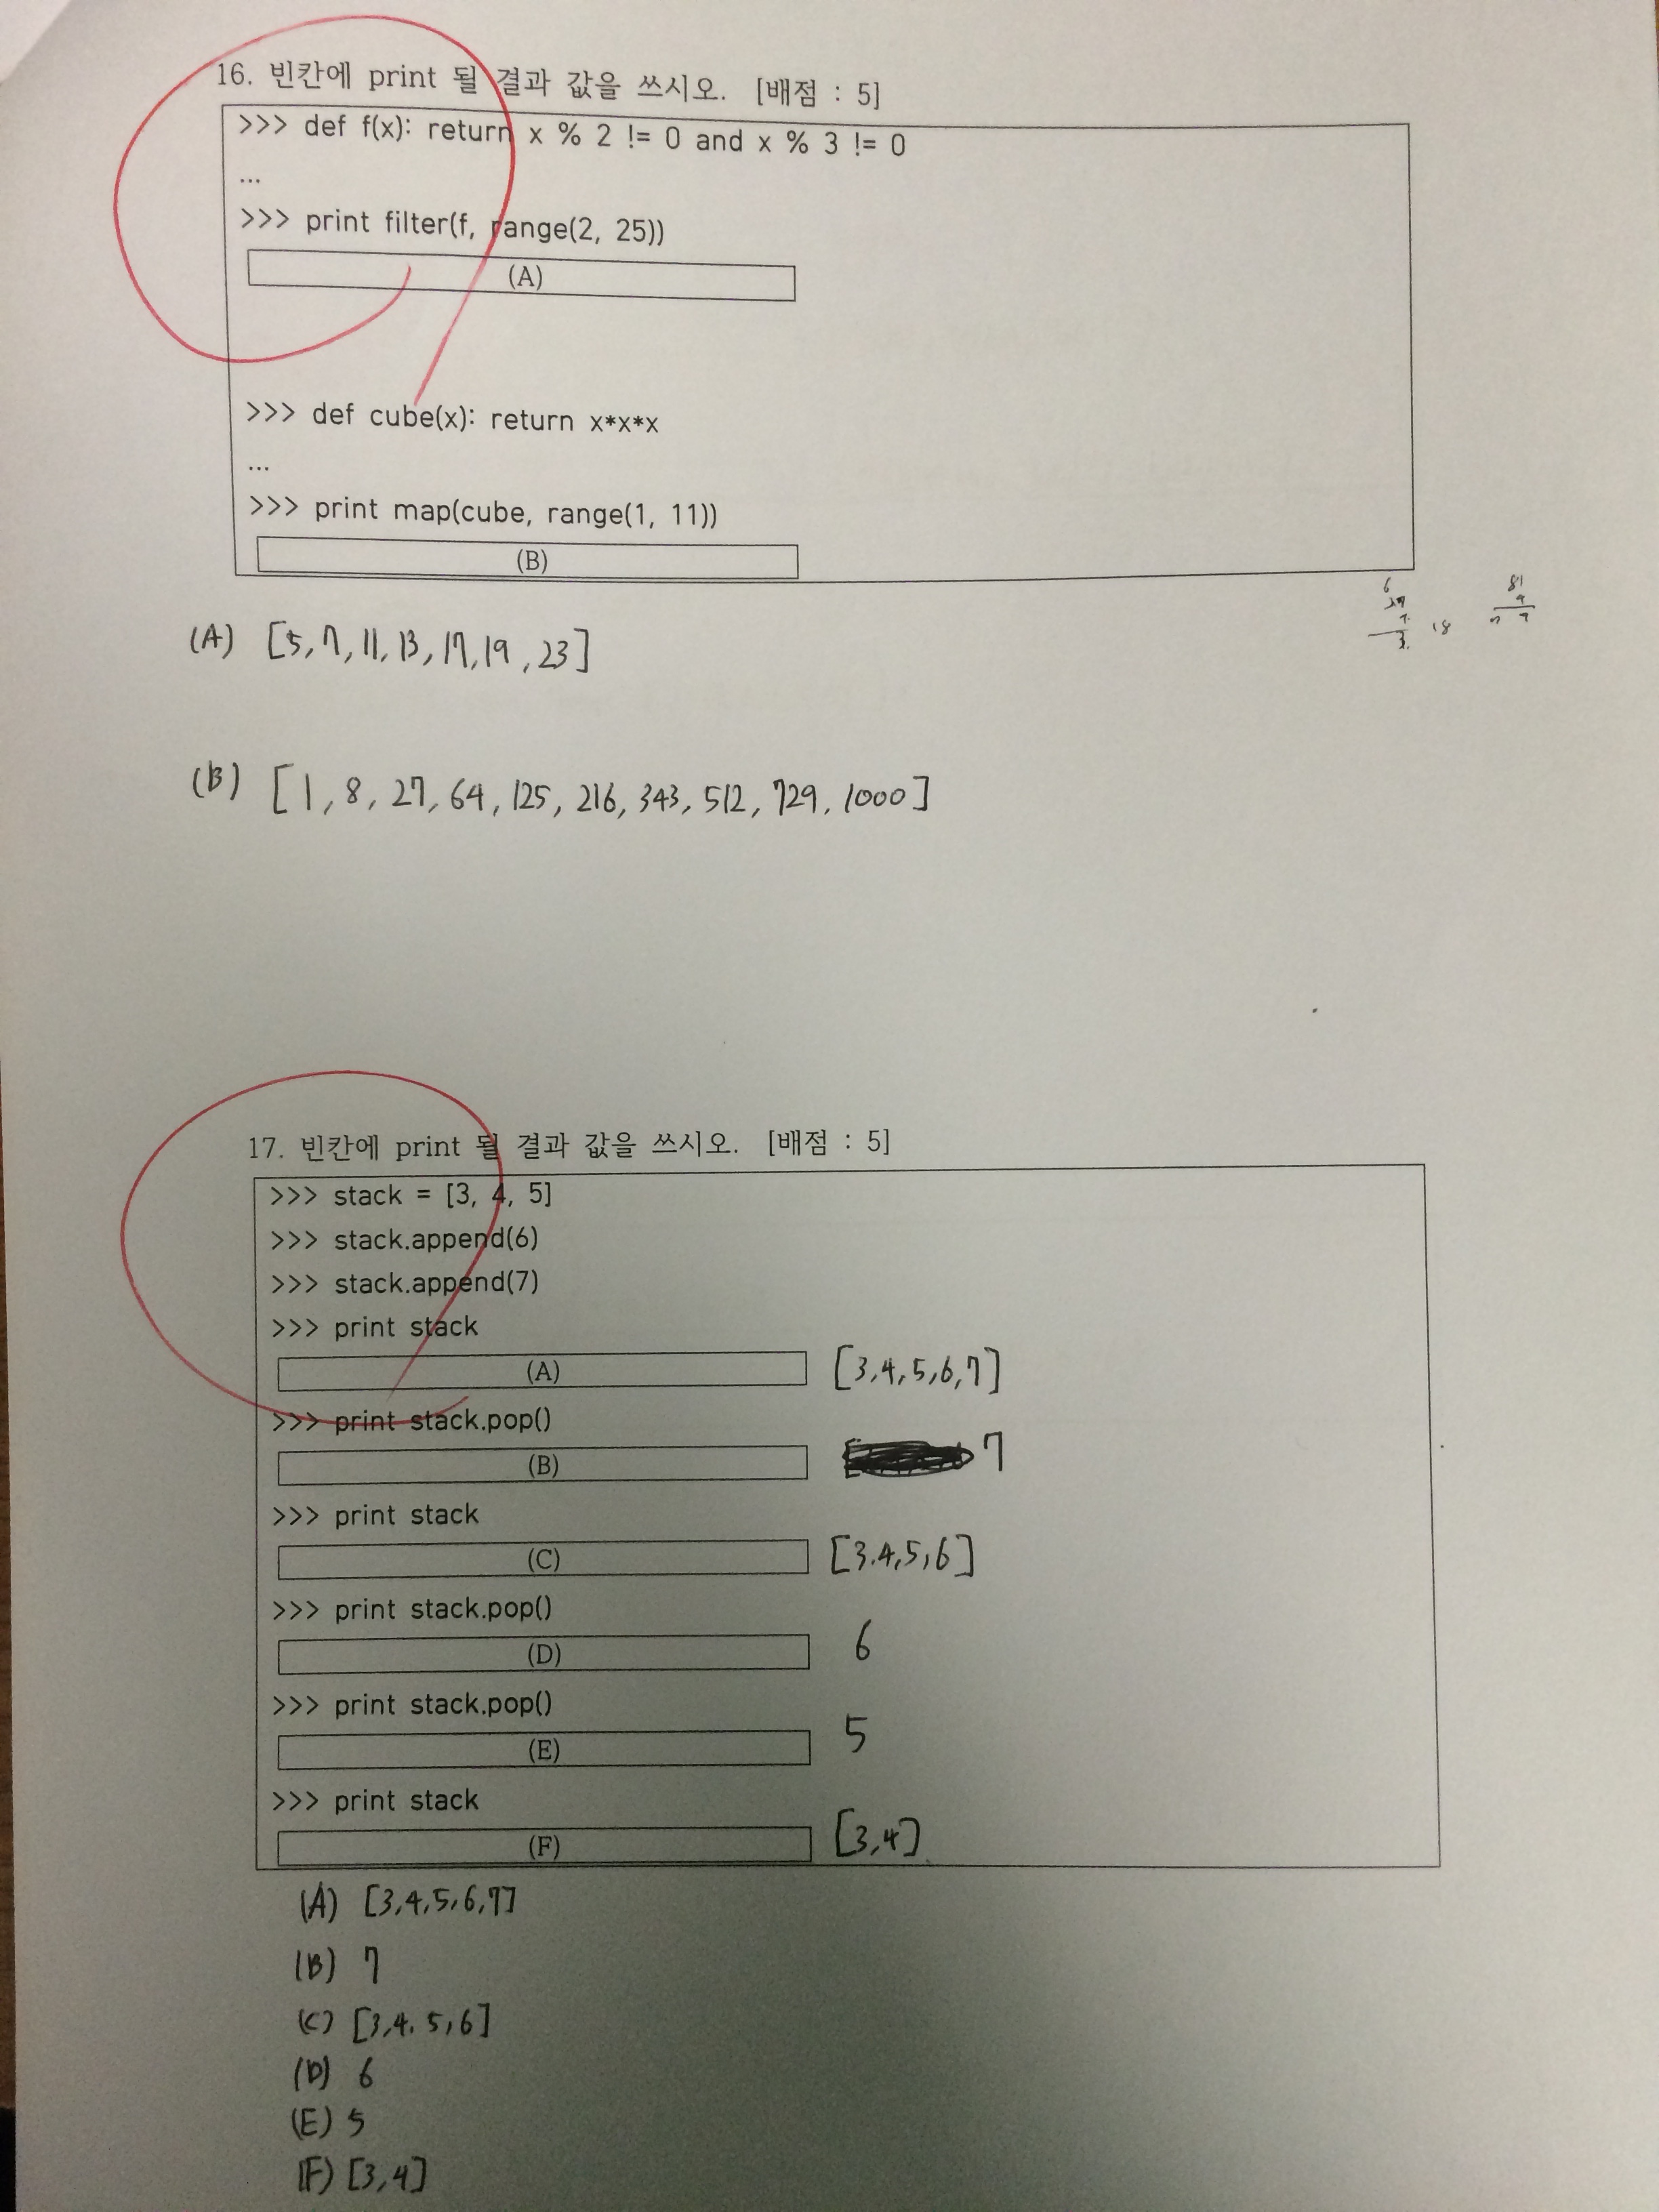 16. 빈칸에 print 될 결과 값을 쓰시오. [배점 : 5]
>>> def f(x): return x % 2 != 0 and x % 3 != 0
...
>>> print filter(f, range(2, 25))
(A)
>>> def cube(x): return x*x*x
...
>>> print map(cube, range(1, 11))
(B)
(A) [5, 7, 11, 13, 17, 19, 23]
(B) [1, 8, 27, 64, 125, 216, 343, 512, 729, 1000]
17. 빈칸에 print 될 결과 값을 쓰시오. [배점 : 5]
>>> stack = [3, 4, 5]
>>> stack.append(6)
>>> stack.append(7)
>>> print stack
(A) [3,4,5,6,7]
>>> print stack.pop()
(B) 7
>>> print stack
(C) [3.4,5,6]
>>> print stack.pop()
(D) 6
>>> print stack.pop()
(E) 5
>>> print stack
(F) [3,4]
(A) [3,4,5,6,7]
(B) 7
(C) [3,4.5,6]
(D) 6
(E) 5
(F) [3,4]